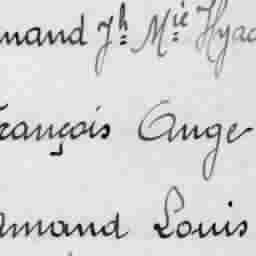 mand Jh Mie Hyac
rançois Ange
rmand Louis